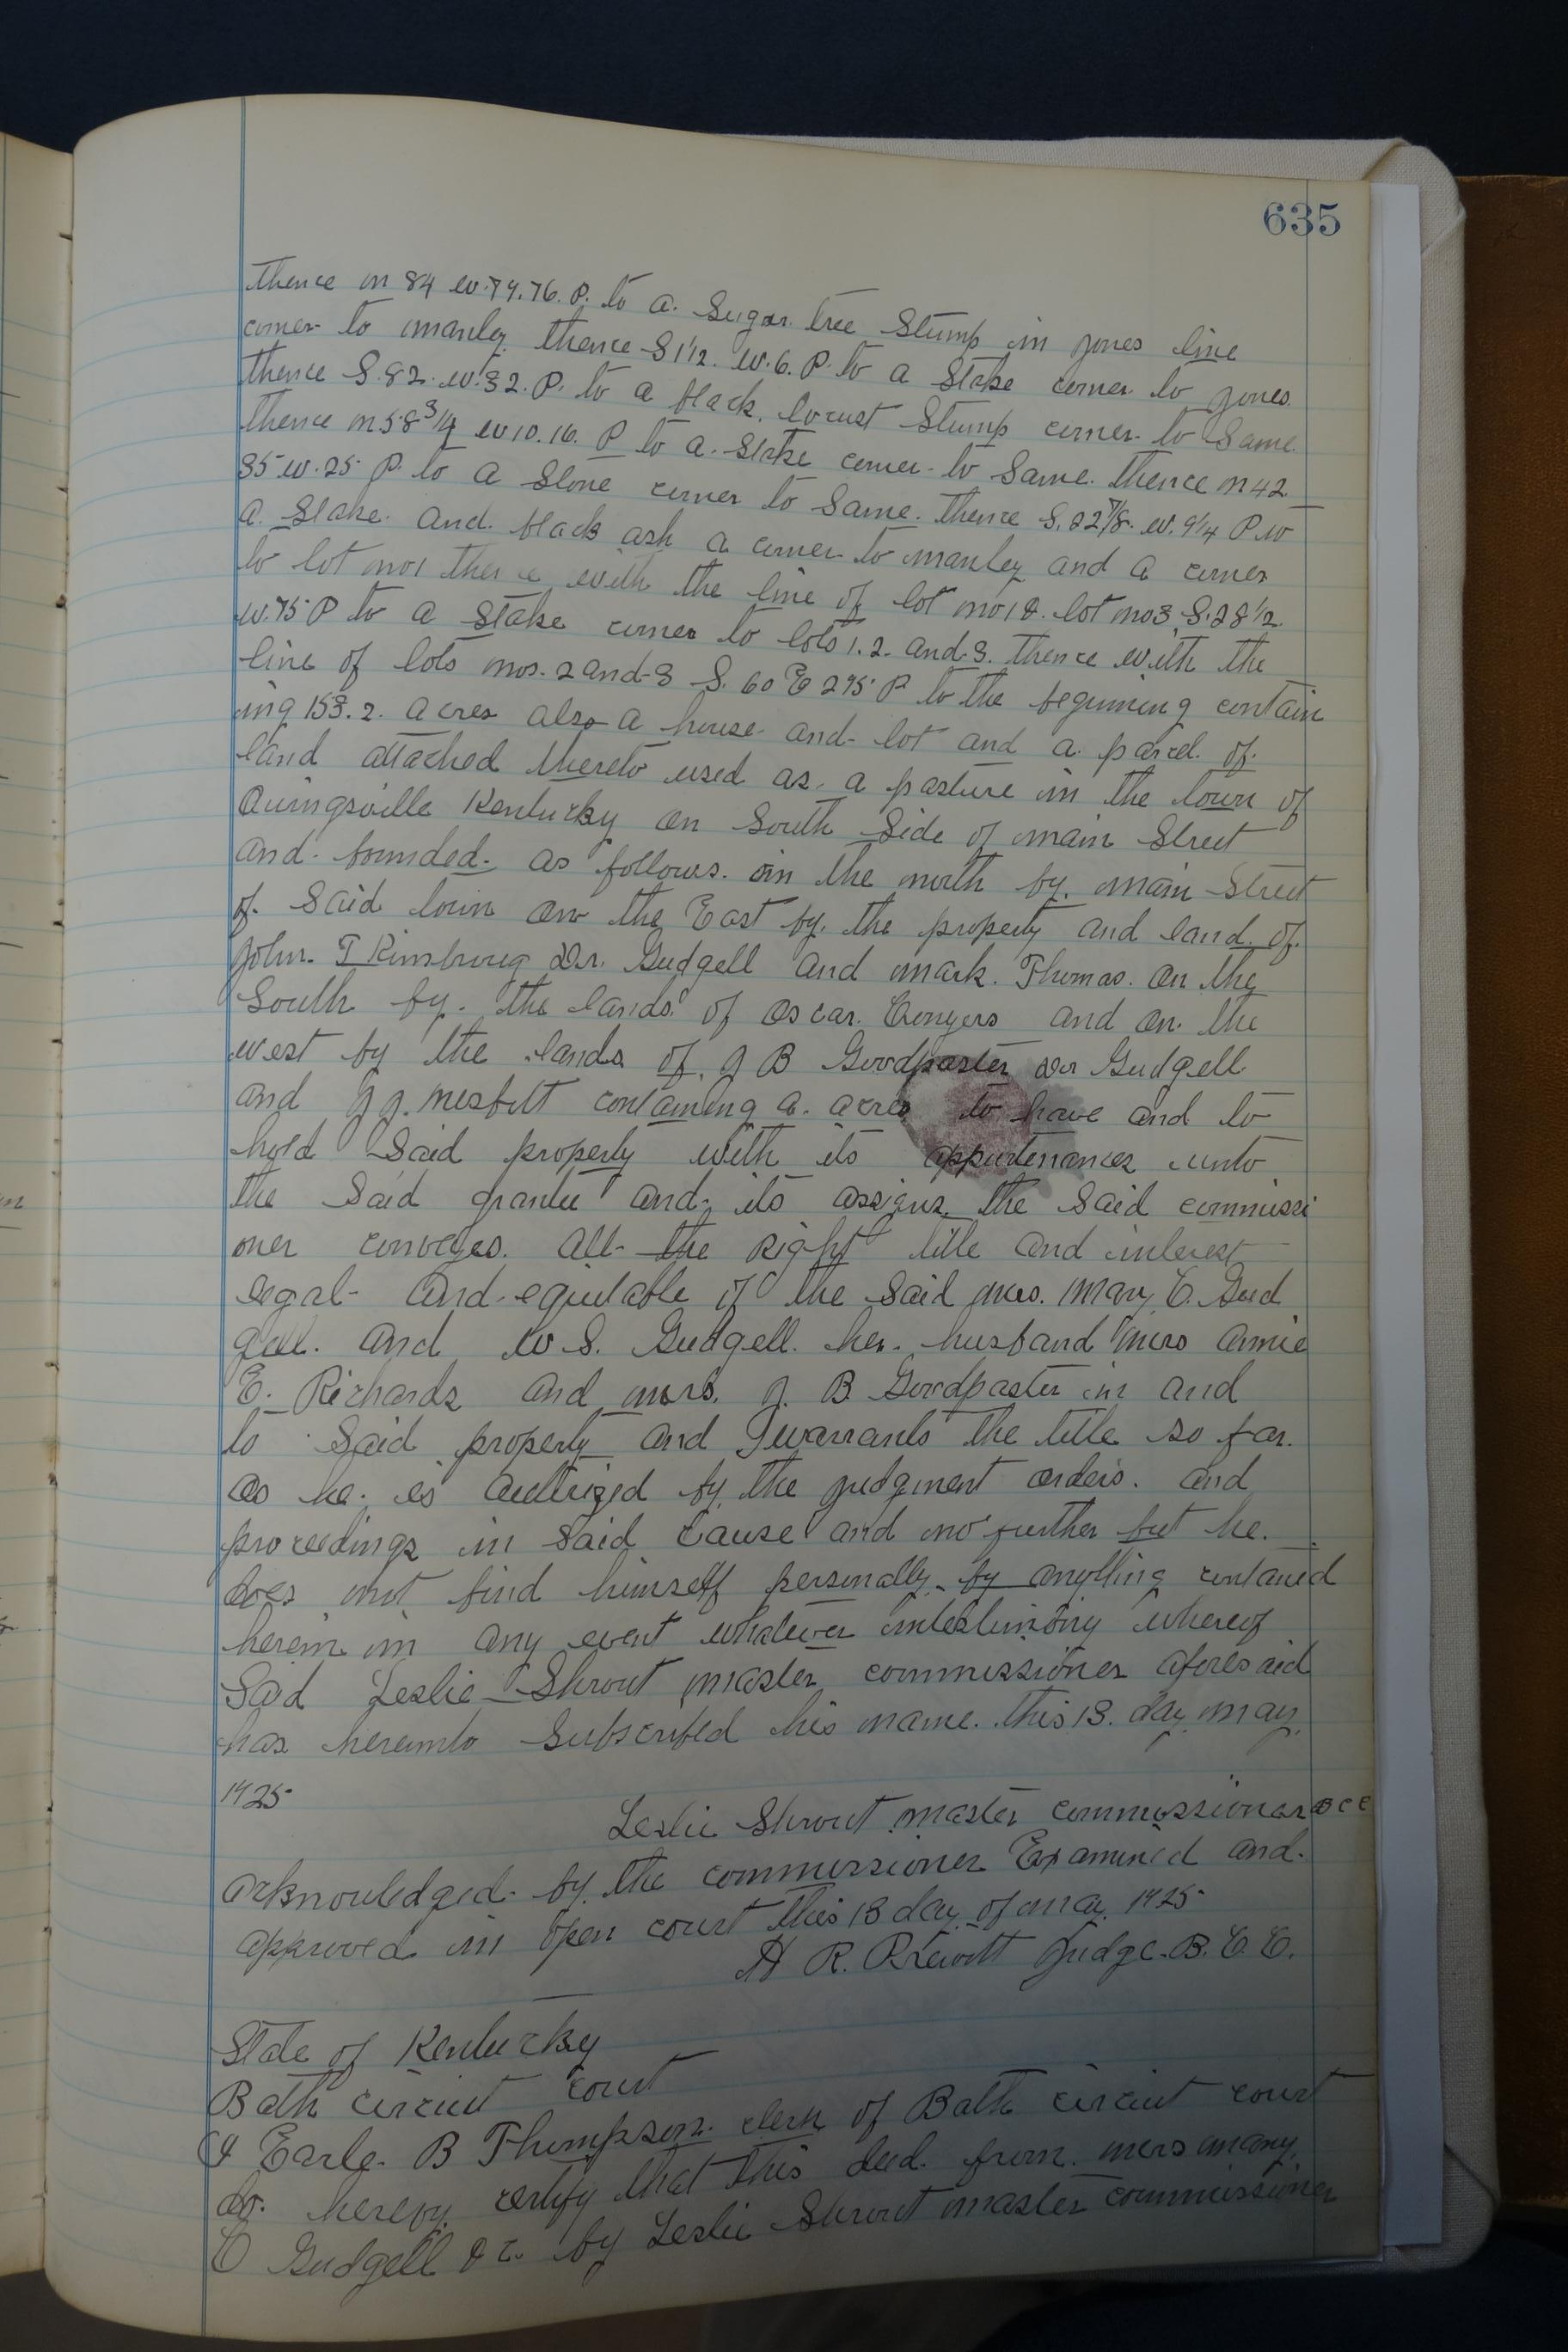 635
thence N 84 W. 79.76. P. to a. Sugar. tree Stump in Jones line
corner to Manley thence S 1 1/2. W. 6. P. to a Stake corner to Jones.
thence S. 82. W. 32. P. to a black. locust Stump corner to Same.
thence N 58 3/4 W 10.16. P to a. Stake corner to Same. thence N 42
35 W. 25 P. to a Stone corner to Same. thence S. 22 7/8. W. 9 1/4 P to
a. Stake. and. black ash a corner to Manley and a corner
to lot No 1 thence with the line of lot No 1 & lot No 3 S. 28 1/2
W. 75 P to a Stake corner to lots 1. 2. and 3. thence with the
line of lots Nos. 2 and 3 S. 60 E 275 P to the beginning contain
ing 153. 2. acres also a house and lot and a parcel of
land attached thereto used as a pasture in the town of
Owingsville Kentucky on South Side of Main Street
and bounded as follows. on the north by. Main Street
of Said town on the East by. the property and land. of.
John. T Kimbroug Dr. Gudgell and Mark. Thomas. on the
South by. the lands of Oscar. Congers and on. the
west by the lands of J B Goodpaster Dr Gudgell
and J J. Nesbitt containing a. acres to have and to
hold Said property with its appurtenances unto
the Said grantee and its assigns. the Said commissi
oner conveyes. all the right title and interest
legal and equitable of the Said Mrs. Mary C. Gud
gell. and W S. Gudgell. her. husband Mrs Annie
E. Richards and Mrs. J. B. Goodpaster in and
to Said property and warrants the title so far.
as he. is autrized by the judgment orders. and
proceedings in Said cause and no further but he.
does not bind himself personally by anything contained
herein in any event whatever intestimony whereof
Said Leslie Shrout Master commissioner aforesaid
has hereunto Subscribed his name. this 13. day May.
1925
Leslie Shrout Master commissioner B C C
acknowledged by the commissioner Examined and
approved in open court this 13 day of May. 1925
H R. Prewitt Judge. B. C. C.
State of Kentucky
Bath circuit court
I Earle. B Thompson. clerk of Bath circuit court
do. hereby certify that this deed. from. Mrs Mary.
C Gudgell &c. by Leslie Shrout Master commissioner